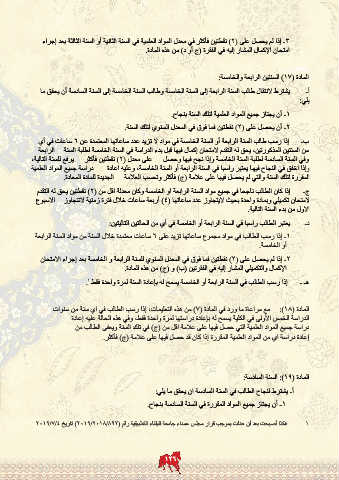 ٣. إذا لم يحصل على (٢) نقطتين فأكثر في معدل المواد العلمية في السنة الثانية أو السنة الثالثة بعد إجراء
امتحان الإكمال المشار إليه في الفقرة (ج أو د) من هذه المادة.
المادة (١٧) السنتين الرابعة والخامسة:
أ. يشترط لانتقال طالب السنة الرابعة إلى السنة الخامسة وطالب السنة الخامسة إلى السنة السادسة أن يحقق ما
يلي:
١. أن يجتاز جميع المواد العلمية لتلك السنة بنجاح.
٢. أن يحصل على (٢) نقطتين فما فوق في المعدل السنوي لتلك السنة.
ب. إذا رسب طالب السنة الرابعة أو السنة الخامسة في مواد لا تزيد عدد ساعاتها المعتمدة عن ٦ ساعات في أي
من السنتين المذكورتين، يحق له التقدم لامتحان إكمال فيها قبل بدء الدراسة في السنة الخامسة لطلبة السنة الرابعة
وفي السنة السادسة لطلبة السنة الخامسة وإذا نجح فيها وحصل على معدل (٢) نقطتين فأكثر يرفع للسنة التالية،
وإذا أخفق في النجاح فيها يعتبر راسبا في السنة الرابعة أو السنة الخامسة، وعليه إعادة دراسة جميع المواد العلمية
المقررة لتلك السنة والتي لم يحصل فيها على علامة (ج) فأكثر، وتحسب العلامة الجديدة للمادة المعادة.
ج. إذا كان الطالب ناجحا في جميع مواد السنة الرابعة أو الخامسة وكان معدله اقل من (٢) نقطتين يحق له التقدم
لامتحان تكميلي وبمادة واحدة بحيث لايتجاوز عدد ساعاتها (٤) أربعة ساعات خلال فترة زمنية لاتتجاوز الاسبوع
الاول من بدء السنة التالية.
د. يعتبر الطالب راسبا في السنة الرابعة أو الخامسة في أي من الحالتين التاليتين:
١. إذا رسب الطالب في مواد مجموع ساعاتها تزيد على ٦ ساعات معتمدة خلال السنة من مواد السنة الرابعة
أو الخامسة.
٢. إذا لم يحصل على (٢) نقطتين فما فوق في المعدل السنوي للسنة الرابعة أو الخامسة بعد إجراء الامتحان
الإكمال والتكميلي المشار إليه في الفقرتين (ب) و (ج) من هذه المادة.
هـ. إذا رسب الطالب في السنة الرابعة أو الخامسة يسمح له بإعادة السنة لمرة واحدة فقط١.
المادة (١٨): مع مراعاة ما ورد في المادة (٧) من هذه التعليمات، إذا رسب الطالب في أي سنة من سنوات
الدراسة الخمس الأولى في الكلية يسمح له بإعادة دراستها لمرة واحدة فقط، وفي هذه الحالة عليه إعادة
دراسة جميع المواد العلمية التي حصل فيها على علامة اقل من (ج) في تلك السنة ويعفى الطالب من
إعادة دراسة أي من المواد العلمية المقررة إذا كان قد حصل فيها على علامة (ج) فأكثر.
المادة (١٩): السنة السادسة:
أ. يشترط لنجاح الطالب في السنة السادسة أن يحقق ما يلي:
١. أن يجتاز جميع المواد المقررة في السنة السادسة بنجاح.
١ هكذا أصبحت بعد أن عدلت بموجب قرار مجلس عمداء جامعة البلقاء التطبيقية رقم (٢٠١٩/٢٠١٨/٨٩٧) تاريخ ٢٠١٩/٧/٤